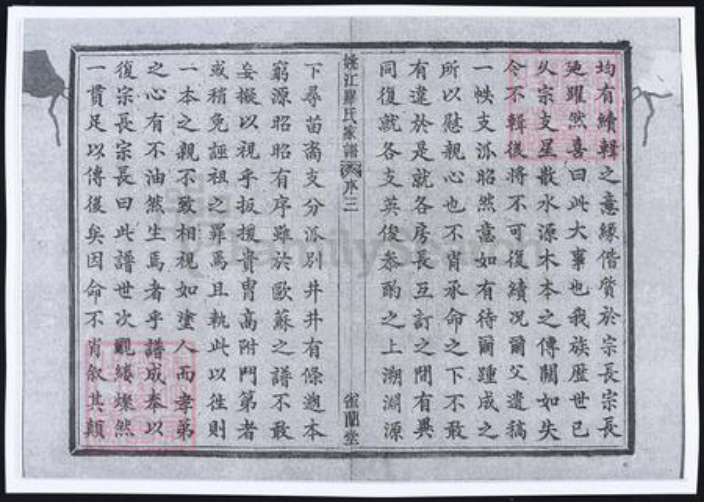 均有續輯之意緣偕質於宗長宗長
廼躍然喜曰此大事也我族歷世已
久宗支星散水源木本之傳闕如失
今不輯後將不可復續况爾父遺稿
一帙支派昭然宛如有待爾踵成之
所以慰親心也不肖承命之下不敢
有違於是就各房長互訂之間有異
同復就各支英俊參酌之上溯淵源
姚江羅氏家譜 序三 寉蘭堂
下尋苗裔支分派別井井有條遡本
窮源昭昭有序雖於歐蘇之譜不敢
妄擬以視乎扳援貴胄高附門第者
或稍免誣祖之罪焉且執此以徃則
一本之親不致相視如塗人而孝弟
之心有不油然生焉者乎譜成奉以
復宗長宗長曰此譜世次覼縷燦然
一貫足以傳後矣因命不肖叙其顛
FamilySearch